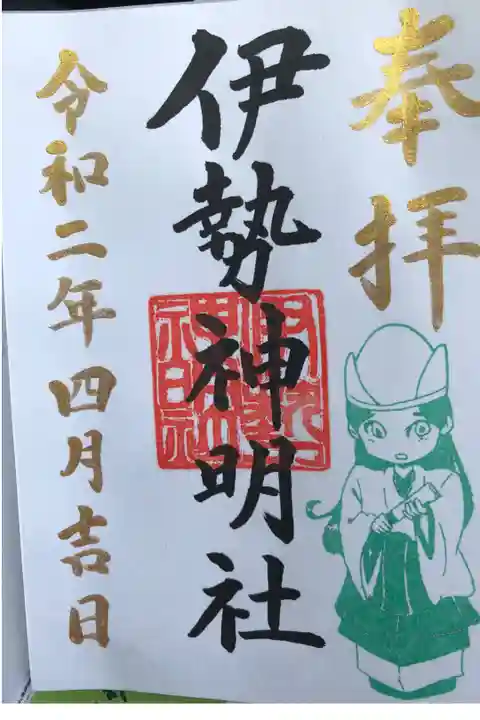 奉拝
伊勢神明社
令和二年四月吉日